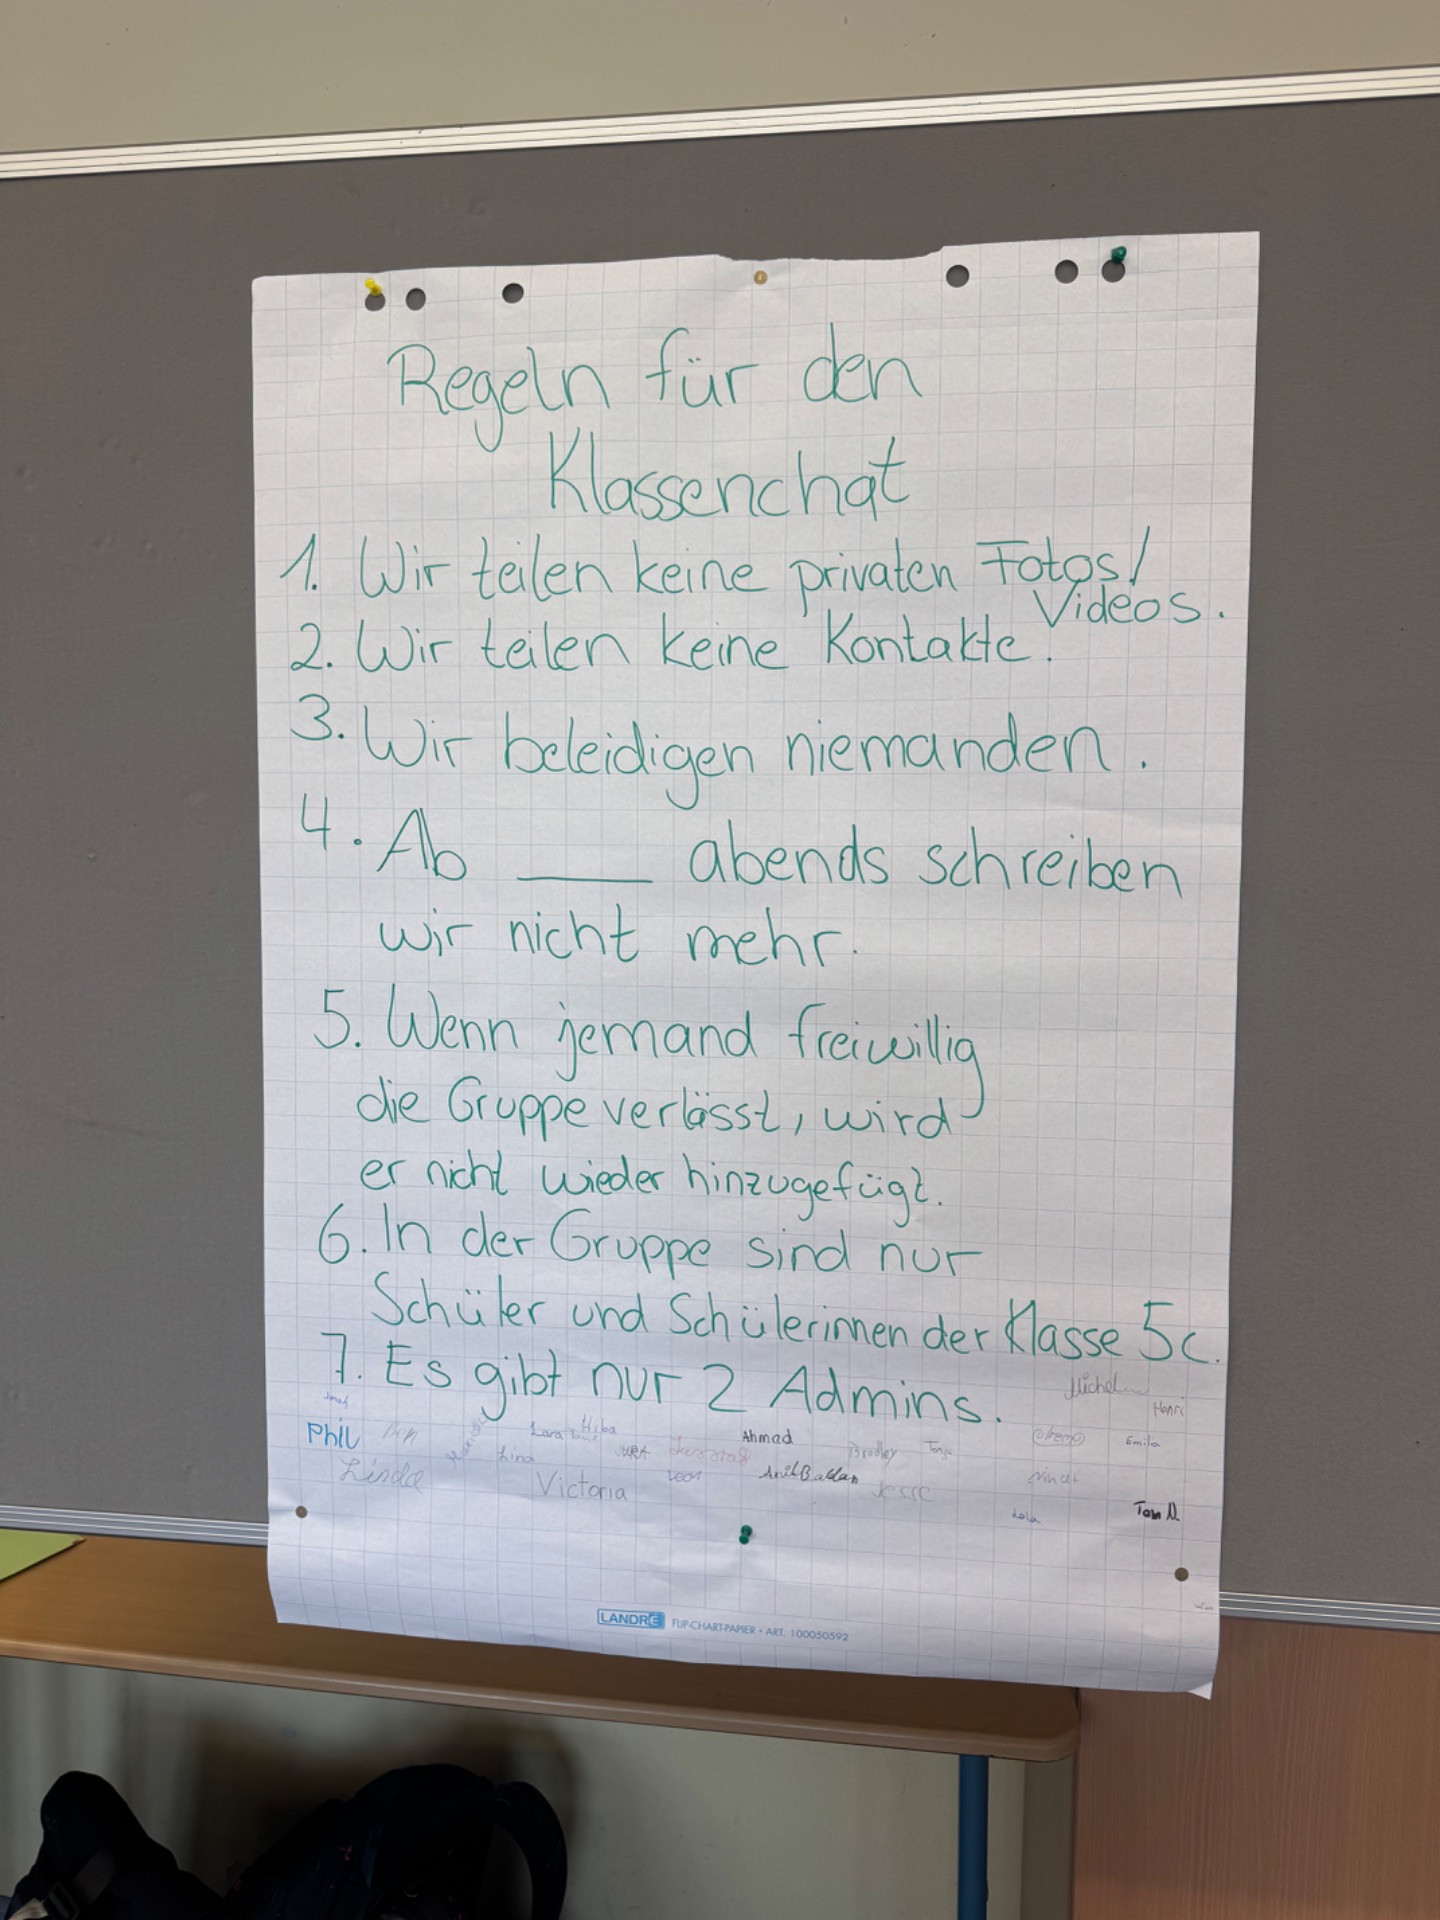 Regeln für den
Klassenchat
1. Wir teilen keine privaten Fotos/
Videos.
2. Wir teilen keine Kontakte.
3. Wir beleidigen niemanden.
4. Ab ____ abends schreiben
wir nicht mehr.
5. Wenn jemand freiwillig
die Gruppe verlässt, wird
er nicht wieder hinzugefügt.
6. In der Gruppe sind nur
Schüler und Schülerinnen der Klasse 5c.
7. Es gibt nur 2 Admins.
Henri
Phil Ben Lara Hiba Ahmad Bradley Emilia
Linda Lina Anil Baldan
Victoria Jesse
Lola Tom N.
LANDRÉ FLIP-CHART-PAPIER • ART. 100050592